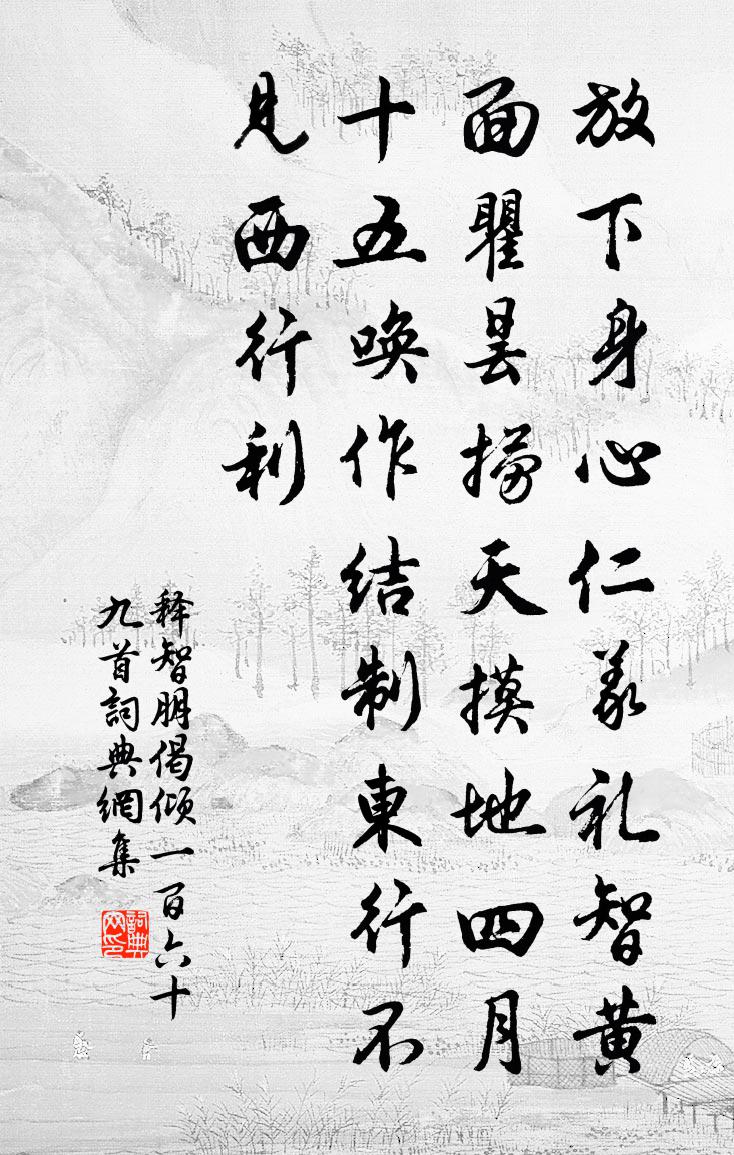 放下身心仁義礼智黄
面瞿曇撈天摸地四月
十五唤作结制東行不
見西行利
释智朋偈倾一百六十
九首詞典網集
詞典网印